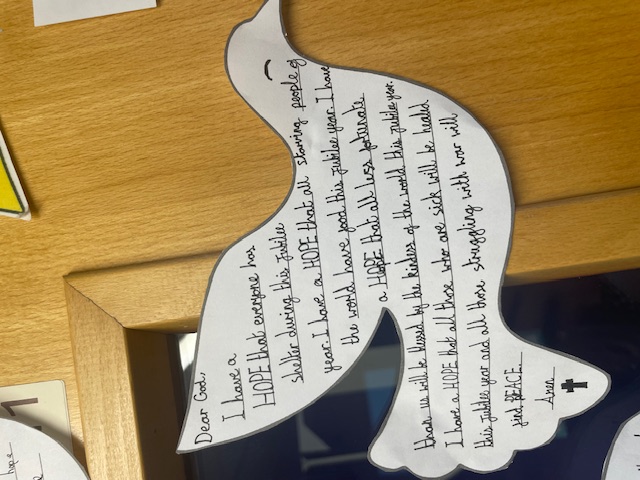 Dear God,
I have a
HOPE that everyone has
shelter during this Jubilee
year. I have a HOPE that all starving people of
the world have food this jubilee year. I have
a HOPE that all less fortunate
than us will be blessed by the kindess of the world this jubilee year.
I have a HOPE that all those who are sick will be healed
this jubilee year and all those struggling with war will
find PEACE.
Amen
hope
1